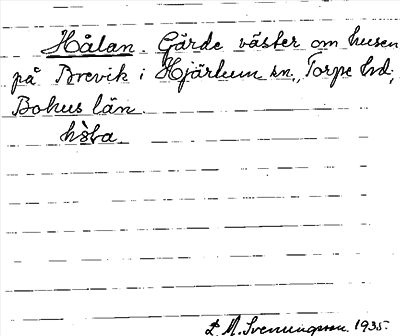 Hålan. Gärde väster om husen
på Brevik i Hjärtum sn., Torpe hd,
Bohus län.
hòla
D. M. Svenungsson 1935.